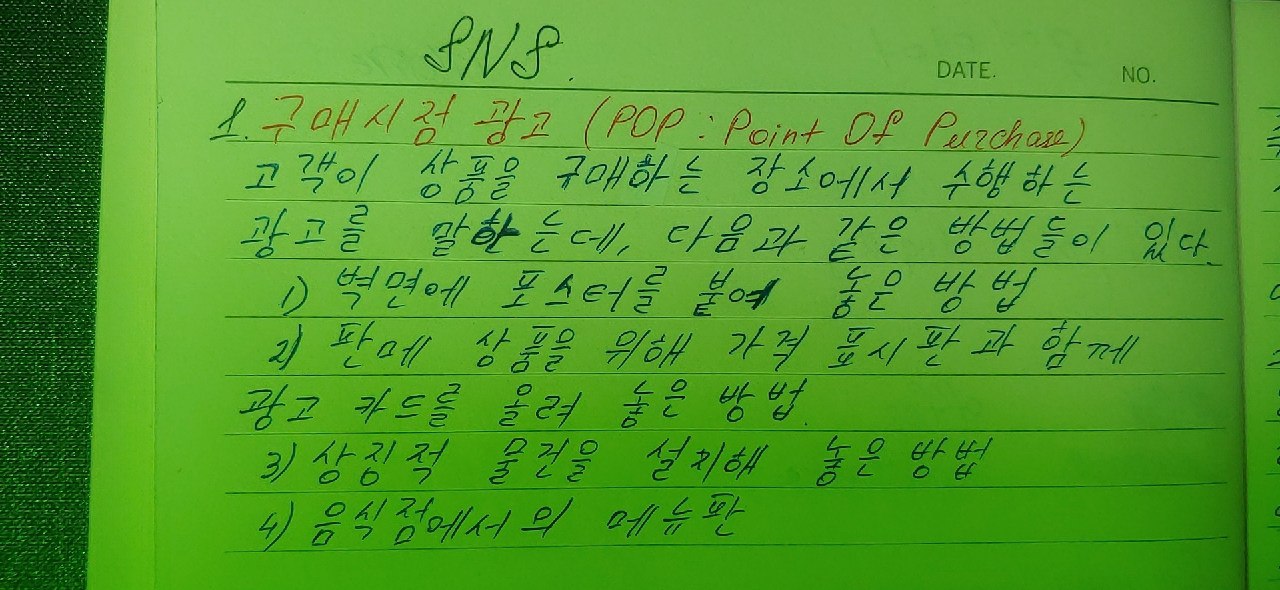 SNS.
DATE. NO.
1. 구매시점 광고 (POP : Point Of Purchase)
고객이 상품을 구매하는 장소에서 수행하는
광고를 말하는데, 다음과 같은 방법들이 있다.
1) 벽면에 포스터를 붙여 놓은 방법
2) 판매 상품을 위해 가격 표시판과 함께
광고 카드를 올려 놓은 방법.
3) 상징적 물건을 설치해 놓은 방법
4) 음식점에서의 메뉴판